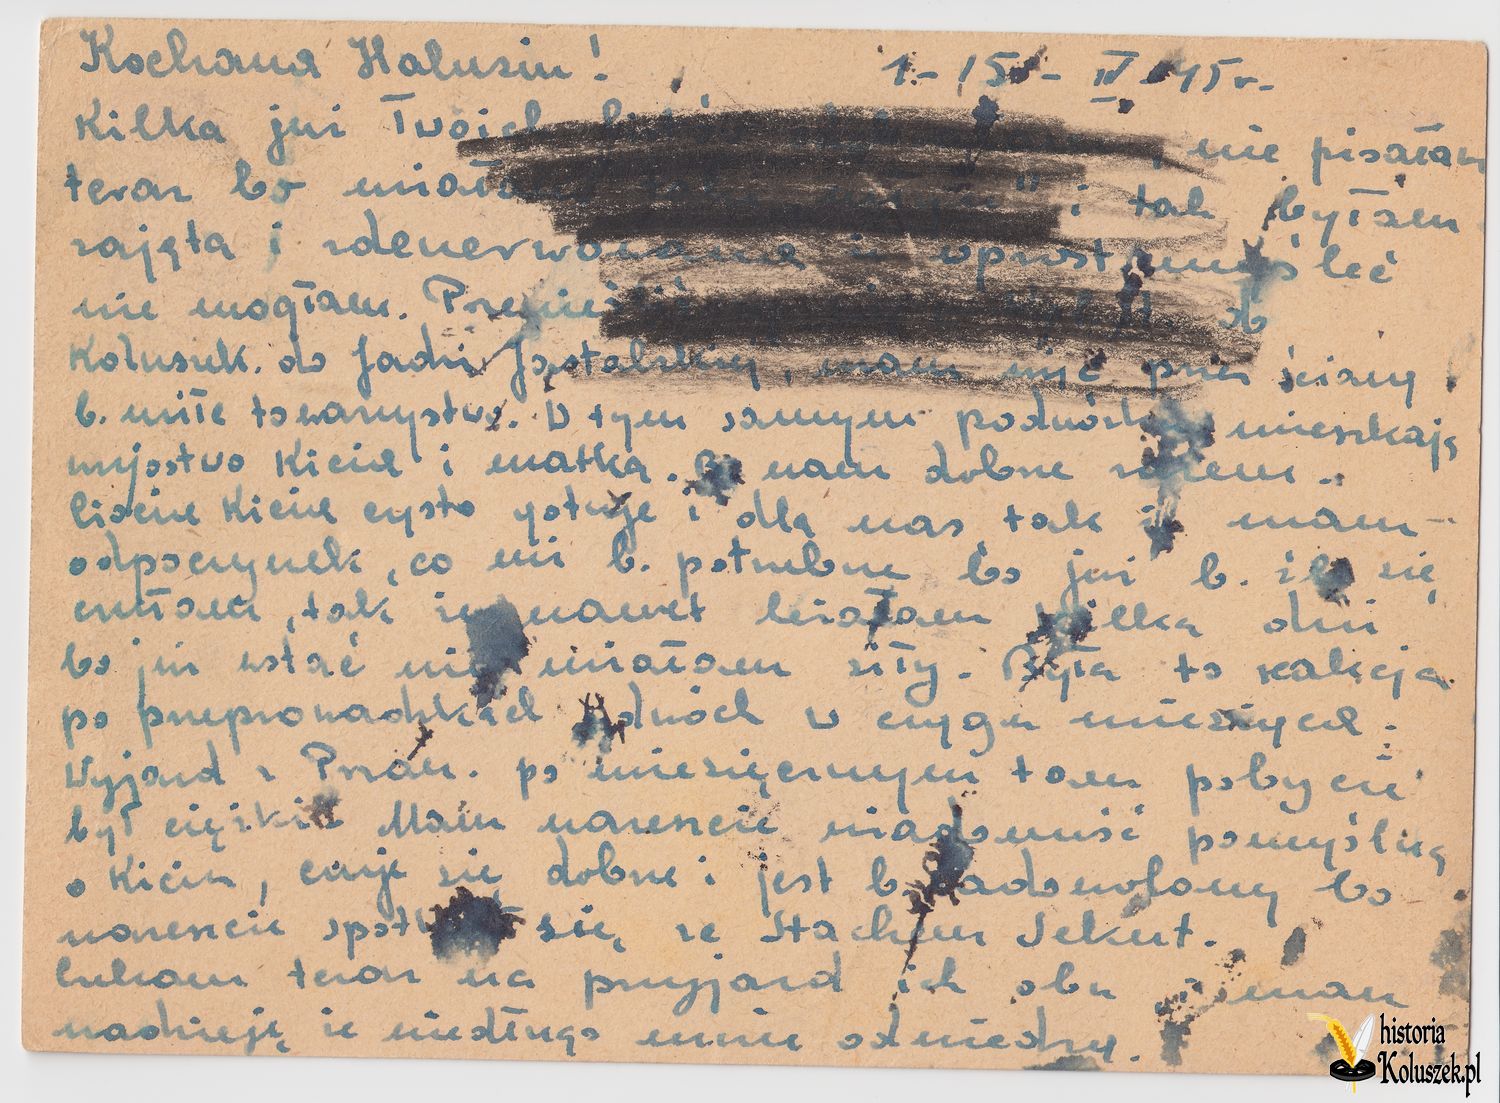 Kochana Halusiu! 1.-15.-IV 45r.-
Kilka już Twoich , nie pisałam
teraz bo miałam i tak byłam
zajęta i zdenerwowana że wprost myśleć
nie mogłam. do
Koluszek. do Jadzi , mam mieć przez ścianę
b. miłe towarzystwo. W tym samym podwórku mieszkają
wujostwo Kicia i matka. nam dobrze razem.
Kicia często gotuje i dla nas, tak że mam
odpoczynek, co mi b. potrzebne bo już b. źle się
czułam, tak że nawet leżałam kilka dni
bo już wstać nie miałam siły. Była to reakcja
po przeprowadzkach dwóch w ciągu miesiąca.
Wyjazd z Pozn. po miesięcznym tam pobycie
był ciężki. Mam nareszcie wiadomość pomyślną
o Kiciu, czuje się dobrze i jest b. zadowolony bo
nareszcie spotkał się ze Stachem Sekut.
Czekam teraz na przyjazd ich obu i mam
nadzieję że niedługo mnie odwiedzą.
historia
Koluszek.pl